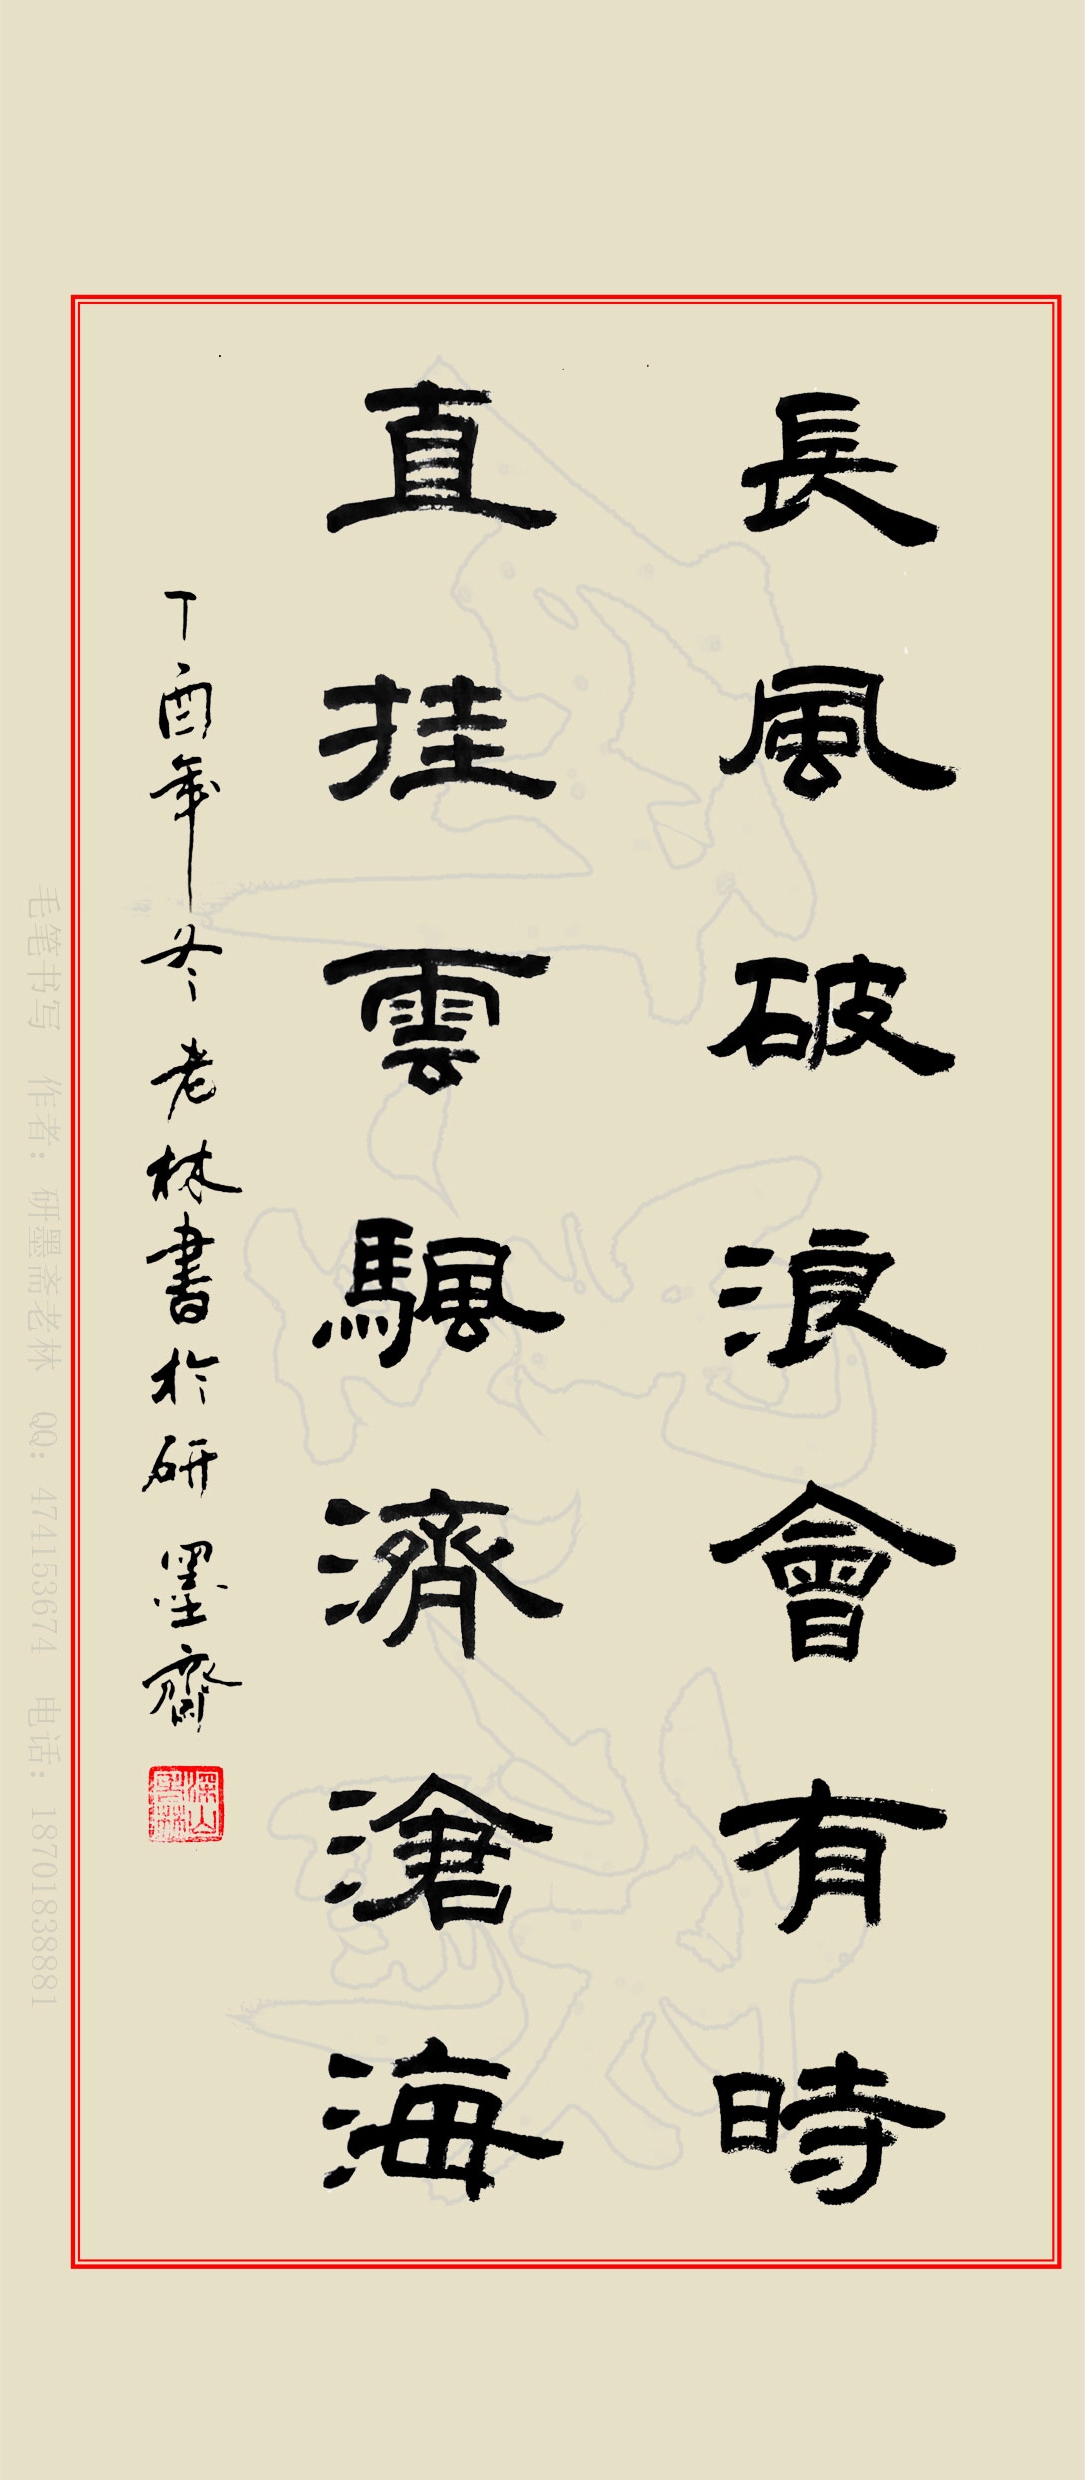 長風破浪會有時
直挂雲颿濟滄海
丁酉年冬老林書於研墨齋
毛笔书写 作者：研墨斋老林 QQ：474153674 电话：18701838881